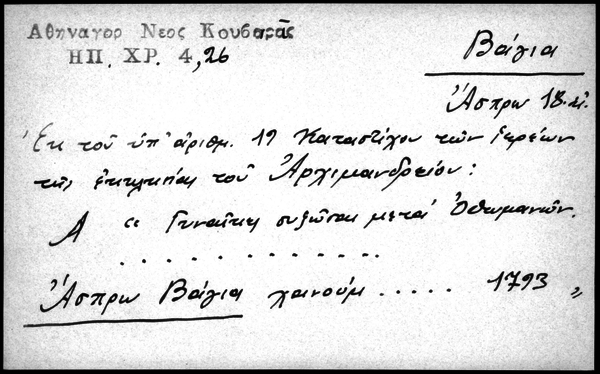 Αθηναγορ Νεος Κουβαρᾶς
ΗΠ. ΧΡ. 4,26
Βάγια
Ἄσπρω 18.αἰ.
Ἐκ τοῦ ὑπ' ἀριθμ. 19 Καταστίχου τῶν ἱερέων
τῆς ἐκκλησίας τοῦ Ἀρχιμανδρείου:
Α " Γυναῖκες συζῶσαι μετά Ὀθωμανῶν.
. . . . . . . . . . . . .
Ἄσπρω Βάγια χανούμ ..... 1793 "